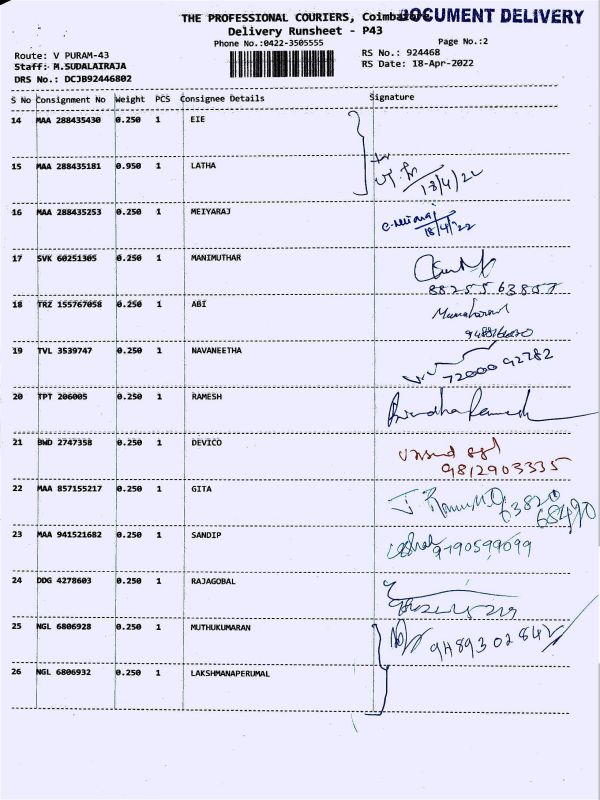 THE PROFESSIONAL COURIERS, Coimbatore
DOCUMENT DELIVERY
Delivery Runsheet - P43
Phone No.:0422-3505555
Page No.:2
Route: V PURAM-43
RS No.: 924468
Staff: M.SUDALAIRAJA
RS Date: 18-Apr-2022
DRS No.: DCJB92446802
S No Consignment No Weight PCS Consignee Details Signature
14 MAA 288435430 0.250 1 EIE
15 MAA 288435181 0.950 1 LATHA
18/4/22
16 MAA 288435253 0.250 1 MEIYARAJ
18/4/22
17 SVK 60251305 0.250 1 MANIMUTHAR
88255 63857
18 TRZ 155767058 0.250 1 ABI
19 TVL 3539747 0.250 1 NAVANEETHA
72000 92782
20 TPT 206005 0.250 1 RAMESH
Brindha Ramesh
21 BWD 2747358 0.250 1 DEVICO
9812903335
22 MAA 857155217 0.250 1 GITA
63820
68490
23 MAA 941521682 0.250 1 SANDIP
9790599099
24 DDG 4278603 0.250 1 RAJAGOBAL
25 NGL 6806928 0.250 1 MUTHUKUMARAN
9489302842
26 NGL 6806932 0.250 1 LAKSHMANAPERUMAL